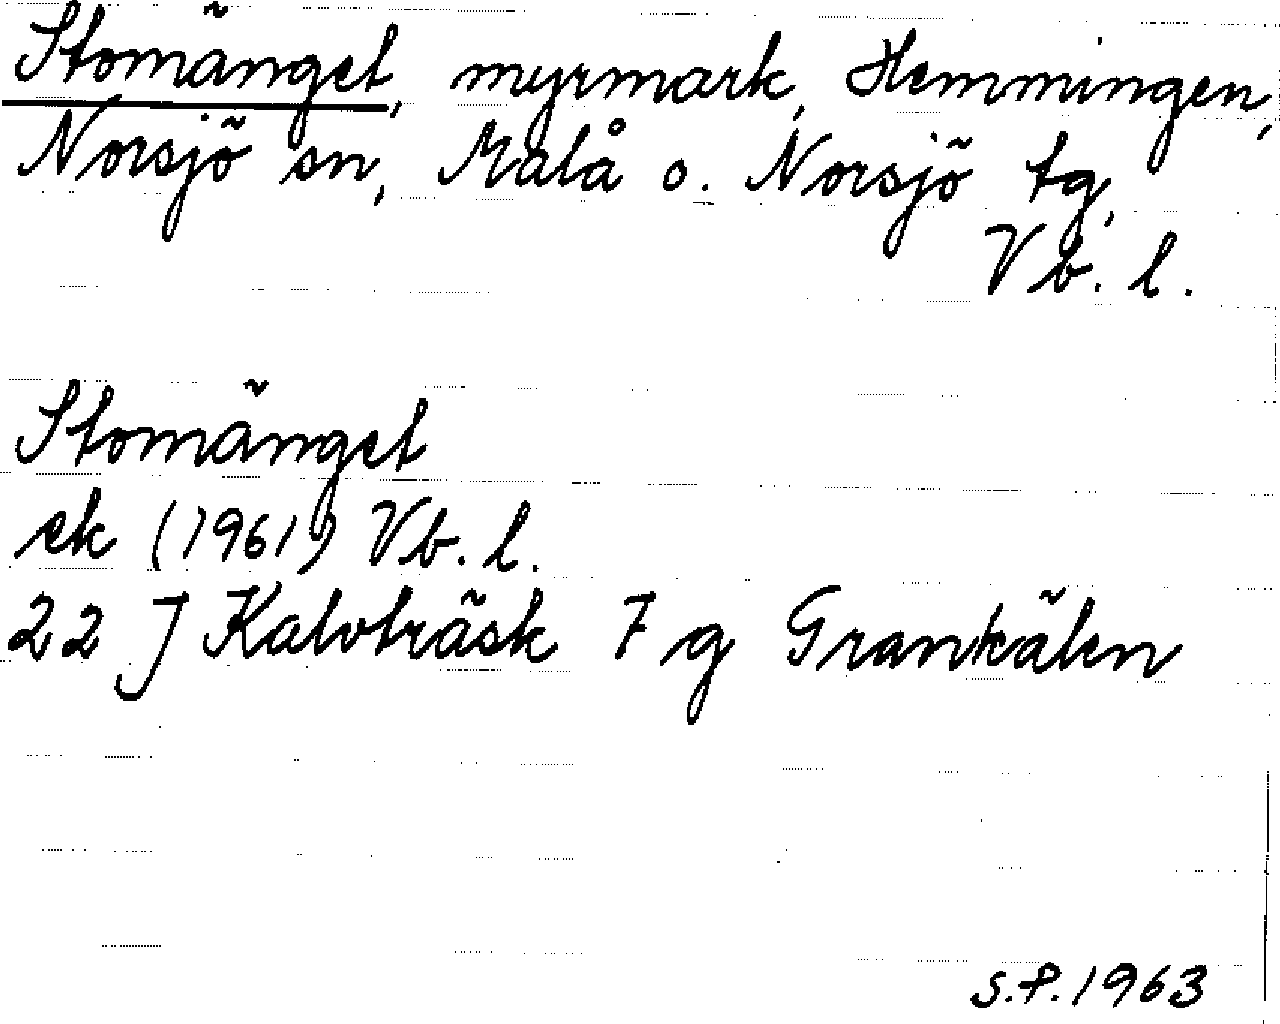 Stomänget, myrmark, Hemmingen,
Norsjö sn, Malå o. Norsjö tg,
Vb. l.
Stomänget
ek (1961) Vb. l.
22 J Kalvträsk 7 g Grankälen
S.P. 1963